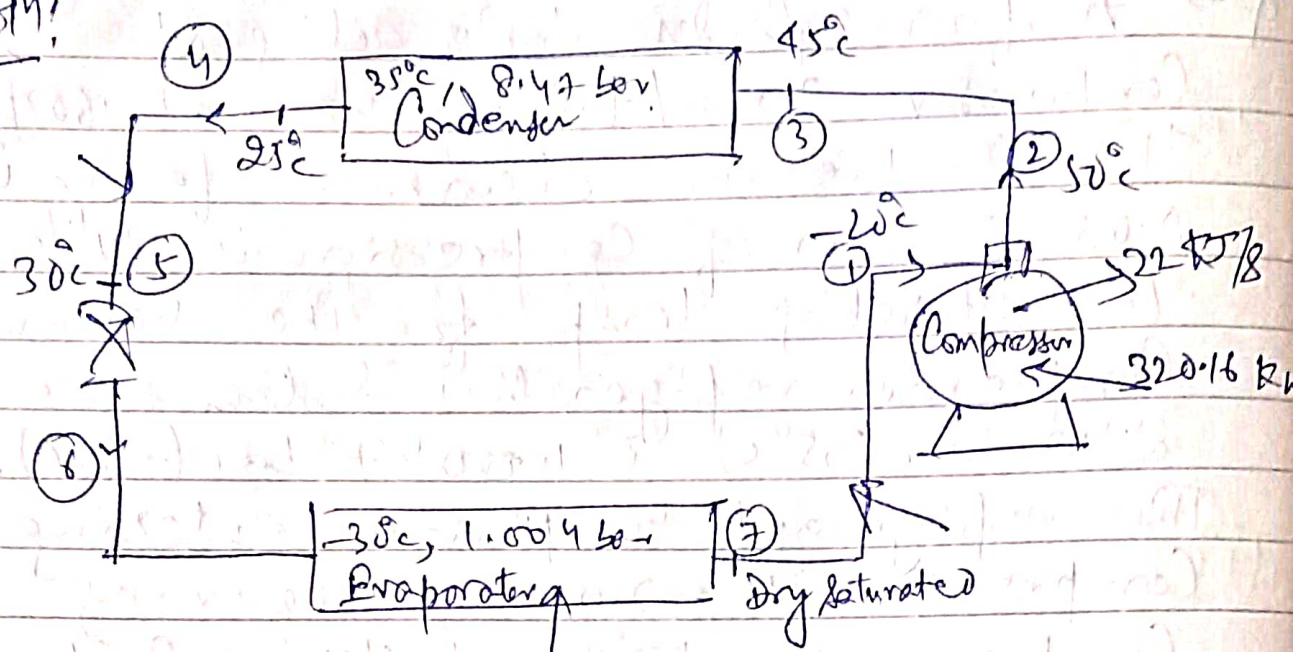 4
45°c
35°c, 8.47 bar
Condenser
25°c
3
2
50°c
-20°c
1
30°c
5
22 KJ/s
Compressor
320.16
6
-30°c, 1.004 bar
Evaporator
7
Dry Saturated